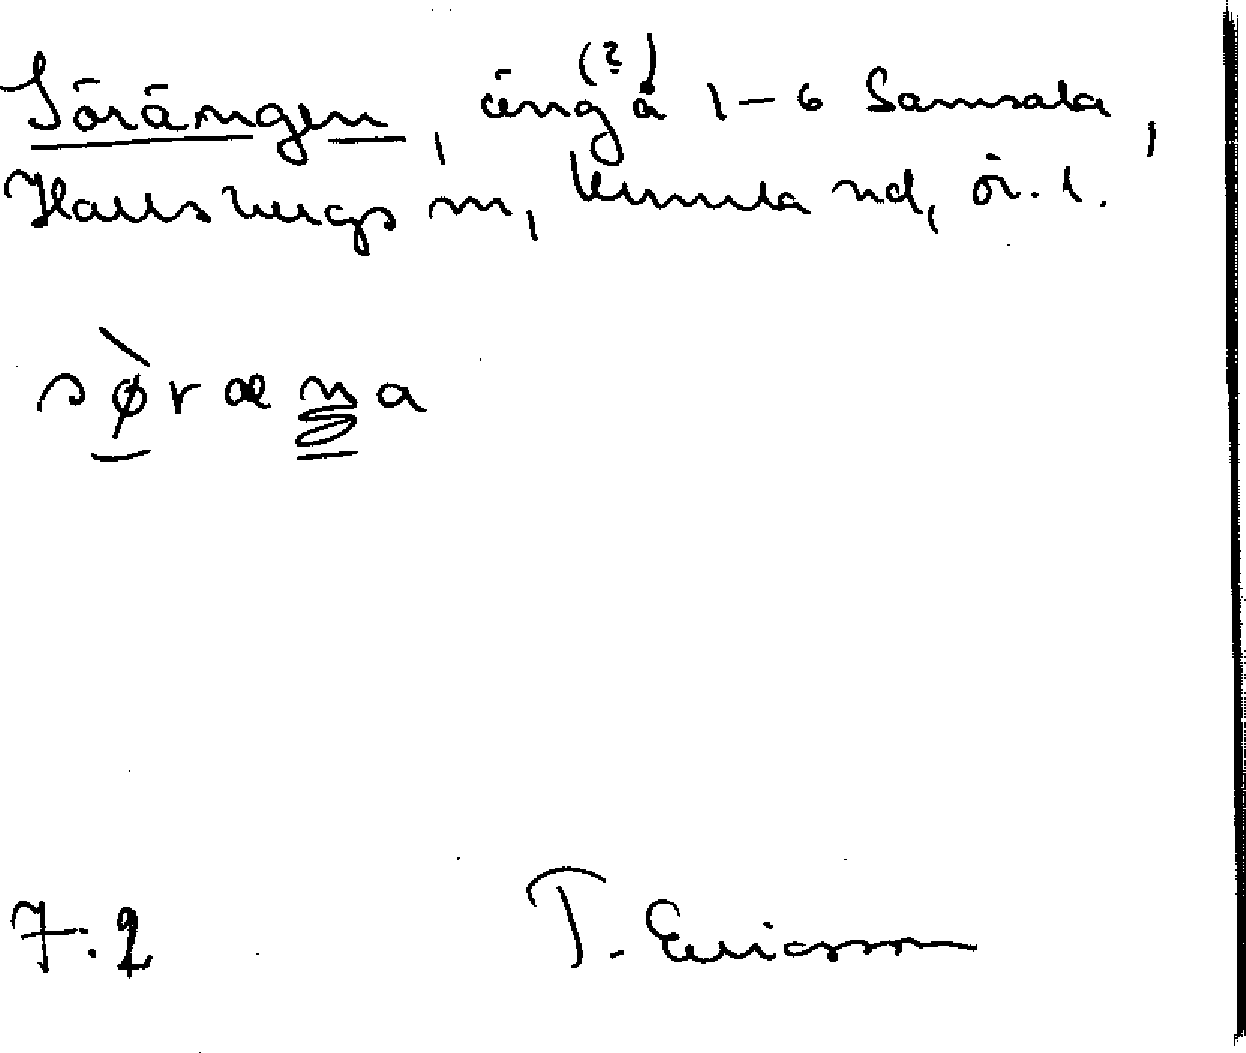 Sörängen, äng (?) å 1-6 Samsala,
Hallsbergs m, Kumla hd, ör. l.
søræŋa
7.2 T. Ericsson